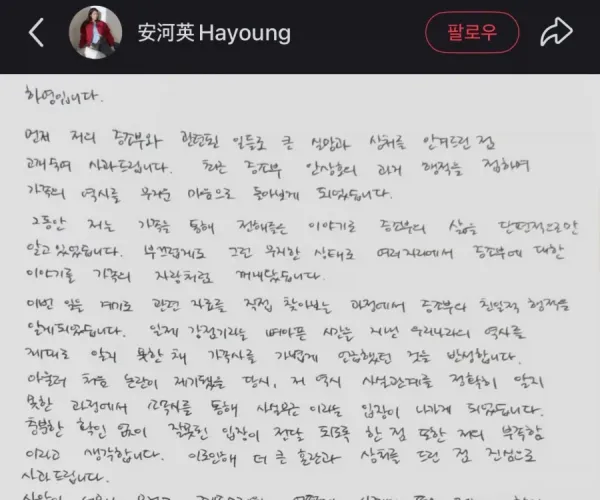 安河英Hayoung
팔로우
하영입니다.
먼저 저의 증조부와 관련된 일들로 큰 실망과 상처를 안겨드린 점
고개숙여 사과드립니다. 최근 증조부 안상호의 과거 행적을 접하며
가족의 역사를 무거운 마음으로 돌아보게 되었습니다.
그동안 저는 가족을 통해 전해들은 이야기로 증조부의 삶을 단편적으로만
알고 있었습니다. 부끄럽게도 그런 무지한 상태로 여러자리에서 증조부에 대한
이야기를 가족의 자랑처럼 꺼내왔습니다.
이번 일을 계기로 관련 자료를 직접 찾아보는 과정에서 증조부의 친일적 행적을
알게되었습니다. 일제 강점기라는 뼈아픈 시간을 지나온 우리나라의 역사를
제대로 알지 못한 채 가족사를 가볍게 언급했던 것을 반성합니다.
아울러 처음 논란이 제기됐을 당시, 저 역시 사실관계를 정확히 알지
못한 과정에서 소속사를 통해 사실무근 이라는 입장이 나가게 되었습니다.
충분한 확인 없이 잘못된 입장이 전달 되도록 한 점 또한 저의 부족함
이라고 생각합니다. 이로인해 더 큰 혼란과 상처를 드린 점 진심으로
사과드립니다.